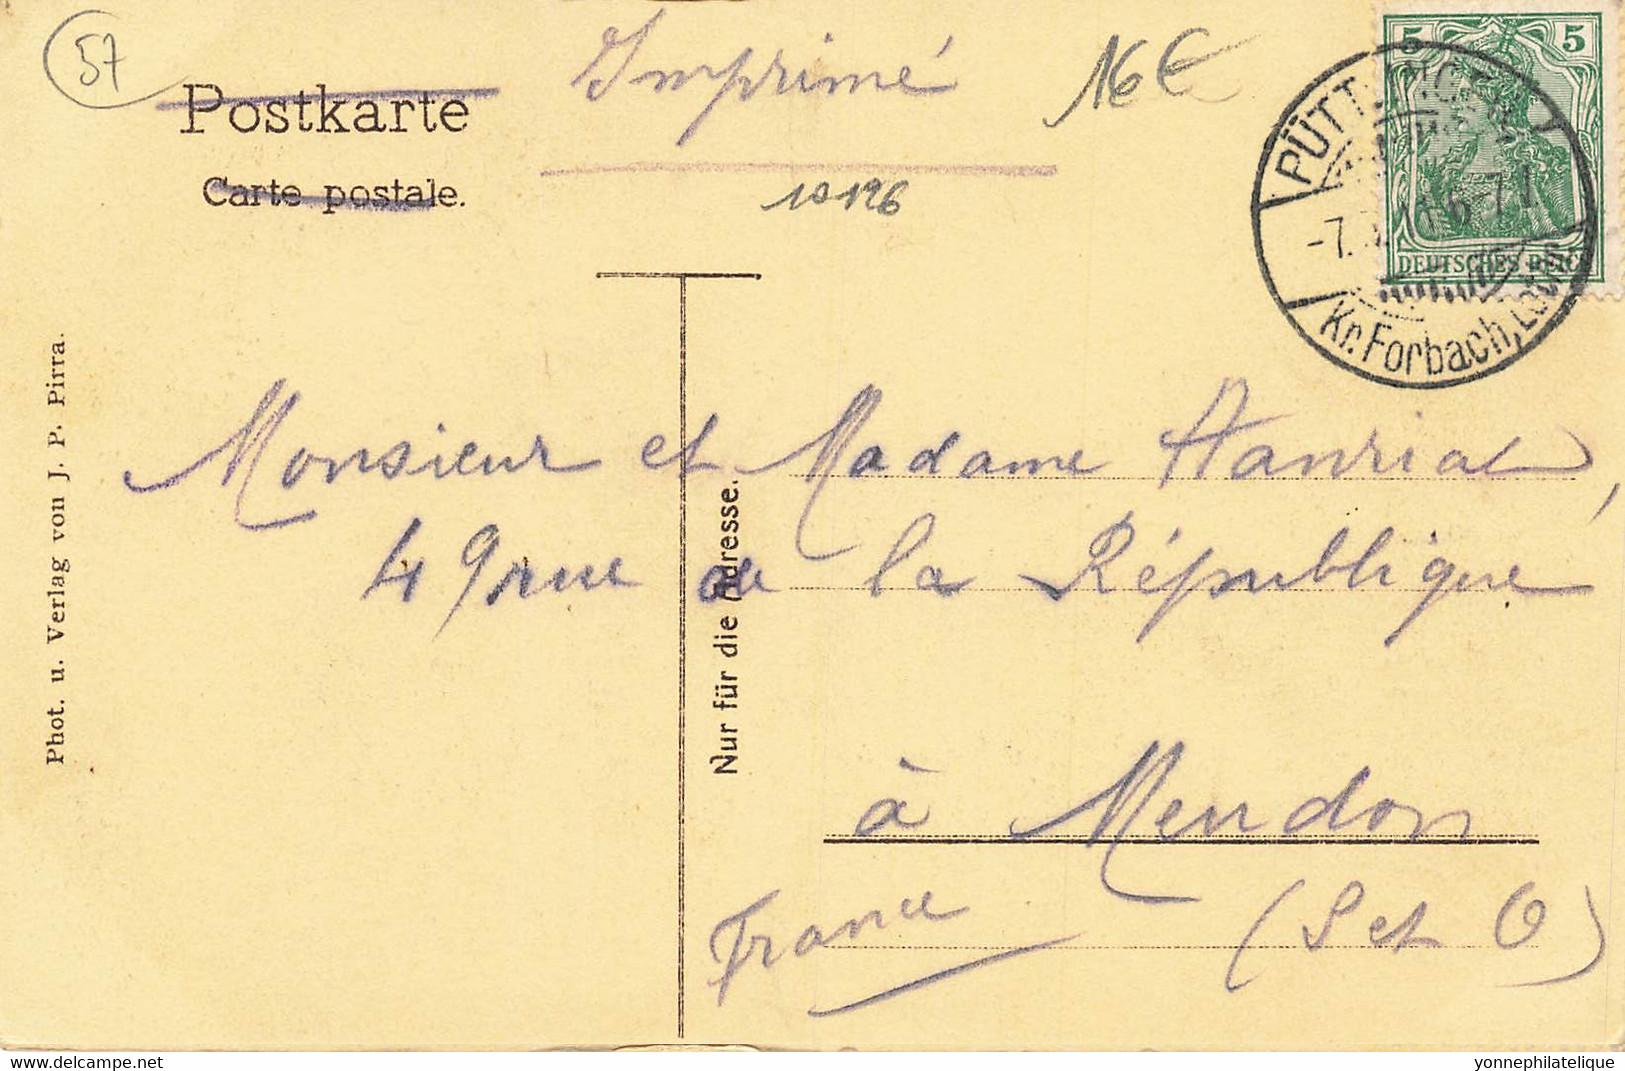 57
Postkarte
Carte postale.
Imprimé
16 €
10126
5 5
DEUTSCHES REICH
PÜTTLINGEN
-7. 6-7
Kr. Forbach, Lothr.
Phot. u. Verlag von J. P. Pirra.
Nur für die Adresse.
Monsieur et Madame Hanriat,
49 rue de la République
à Meudon
France (S et O)
delcampe.net
yonnephilatelique